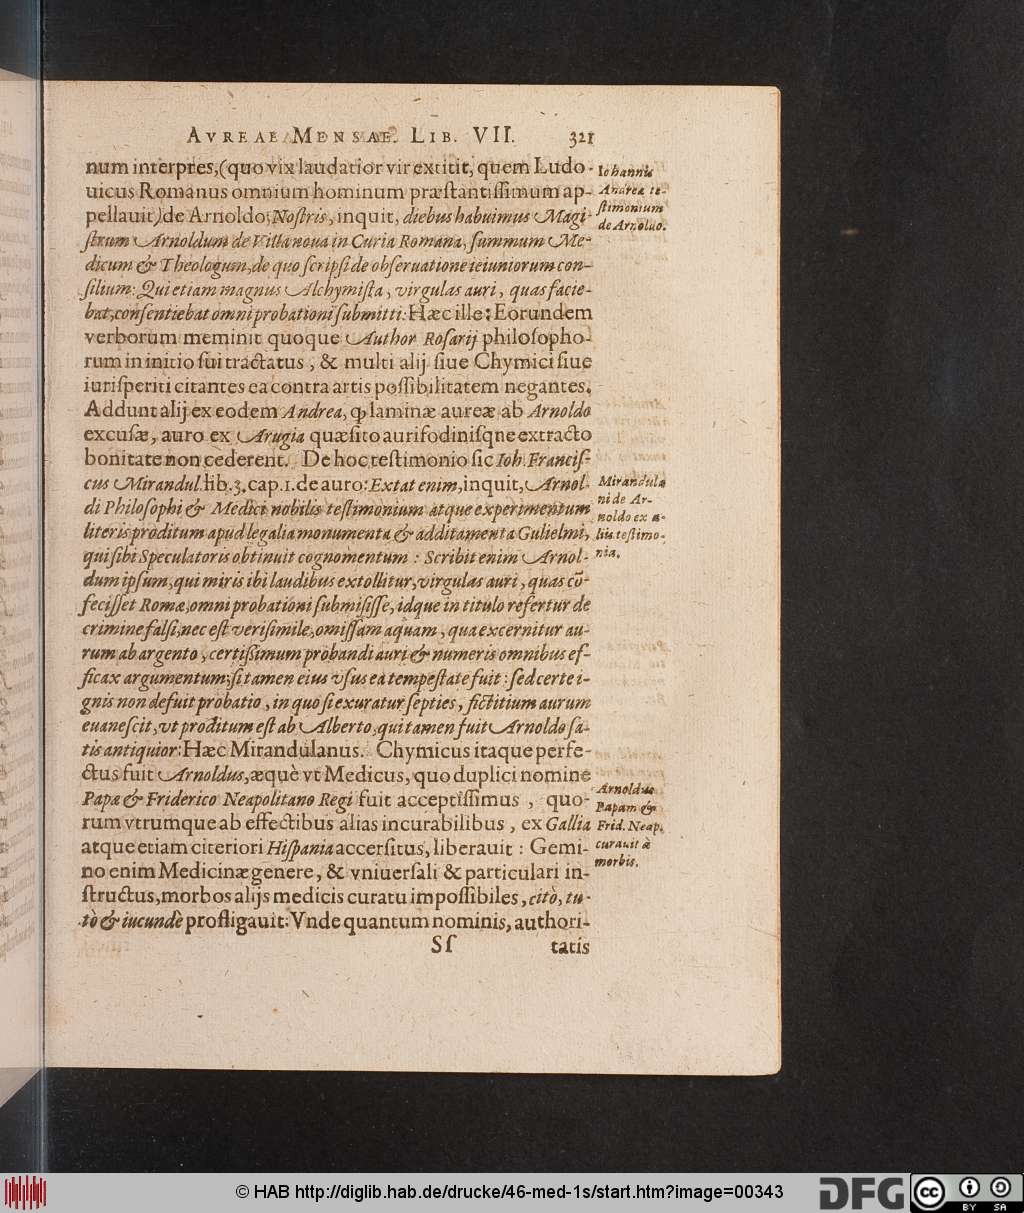 AVREAE MENSAE. LIB. VII. 321
num interpres, (quo vix laudatior vir extitit, quem Ludo-
uicus Romanus omnium hominum præstantissimum ap-
pellauit) de Arnoldo; Nostris, inquit, diebus habuimus Magi-
strum Arnoldum de Villanoua in Curia Romana, summum Me-
dicum & Theologum, de quo scripsi de obseruatione ieiuniorum con-
silium: Qui etiam magnus Alchymista, virgulas auri, quas facie-
bat, consentiebat omni probationi submitti: Hæc ille: Eorundem
verborum meminit quoque Author Rosarij philosopho-
rum in initio sui tractatus, & multi alij siue Chymici siue
iurisperiti citantes ea contra artis possibilitatem negantes.
Addunt alij ex eodem Andrea, ꝙ laminæ aureæ ab Arnoldo
excusæ, auro ex Arugia quæsito aurifodinisqne extracto
bonitate non cederent. De hoc testimonio sic Ioh. Francis-
cus Mirandul. lib. 3. cap. 1. de auro: Extat enim, inquit, Arnol-
di Philosophi & Medici nobilis testimonium atque experimentum
literis proditum apud legalia monumenta & additamenta Gulielmi,
qui sibi Speculatoris obtinuit cognomentum: Scribit enim Arnol-
dum ipsum, qui miris ibi laudibus extollitur, virgulas auri, quas cõ-
fecisset Romæ, omni probationi submisisse, idque in titulo refertur de
crimine falsi, nec est verisimile, omissam aquam, qua excernitur au-
rum ab argento, certissimum probandi auri & numeris omnibus ef-
ficax argumentum; si tamen eius vsus ea tempestate fuit: sed certe i-
gnis non defuit probatio, in quo si exuratur septies, fictitium aurum
euanescit, vt proditum est ab Alberto, qui tamen fuit Arnoldo sa-
tis antiquior: Hæc Mirandulanus. Chymicus itaque perfe-
ctus fuit Arnoldus, æquè vt Medicus, quo duplici nomine
Papæ & Friderico Neapolitano Regi fuit acceptissimus, quo-
rum vtrumque ab effectibus alias incurabilibus, ex Gallia
atque etiam citeriori Hispania accersitus, liberauit: Gemi-
no enim Medicinæ genere, & vniuersali & particulari in-
structus, morbos alijs medicis curatu impossibiles, citò, tu-
tò & iucundè profligauit: Vnde quantum nominis, authori-
Sſ tatis
Iohannis
Andreæ te-
stimonium
de Arnoldo.
Mirandula
ni de Ar-
noldo ex a-
liis testimo-
nia.
Arnoldus
Papam &
Frid. Neap.
curauit à
morbis.
© HAB http://diglib.hab.de/drucke/46-med-1s/start.htm?image=00343
DFG
cc BY SA